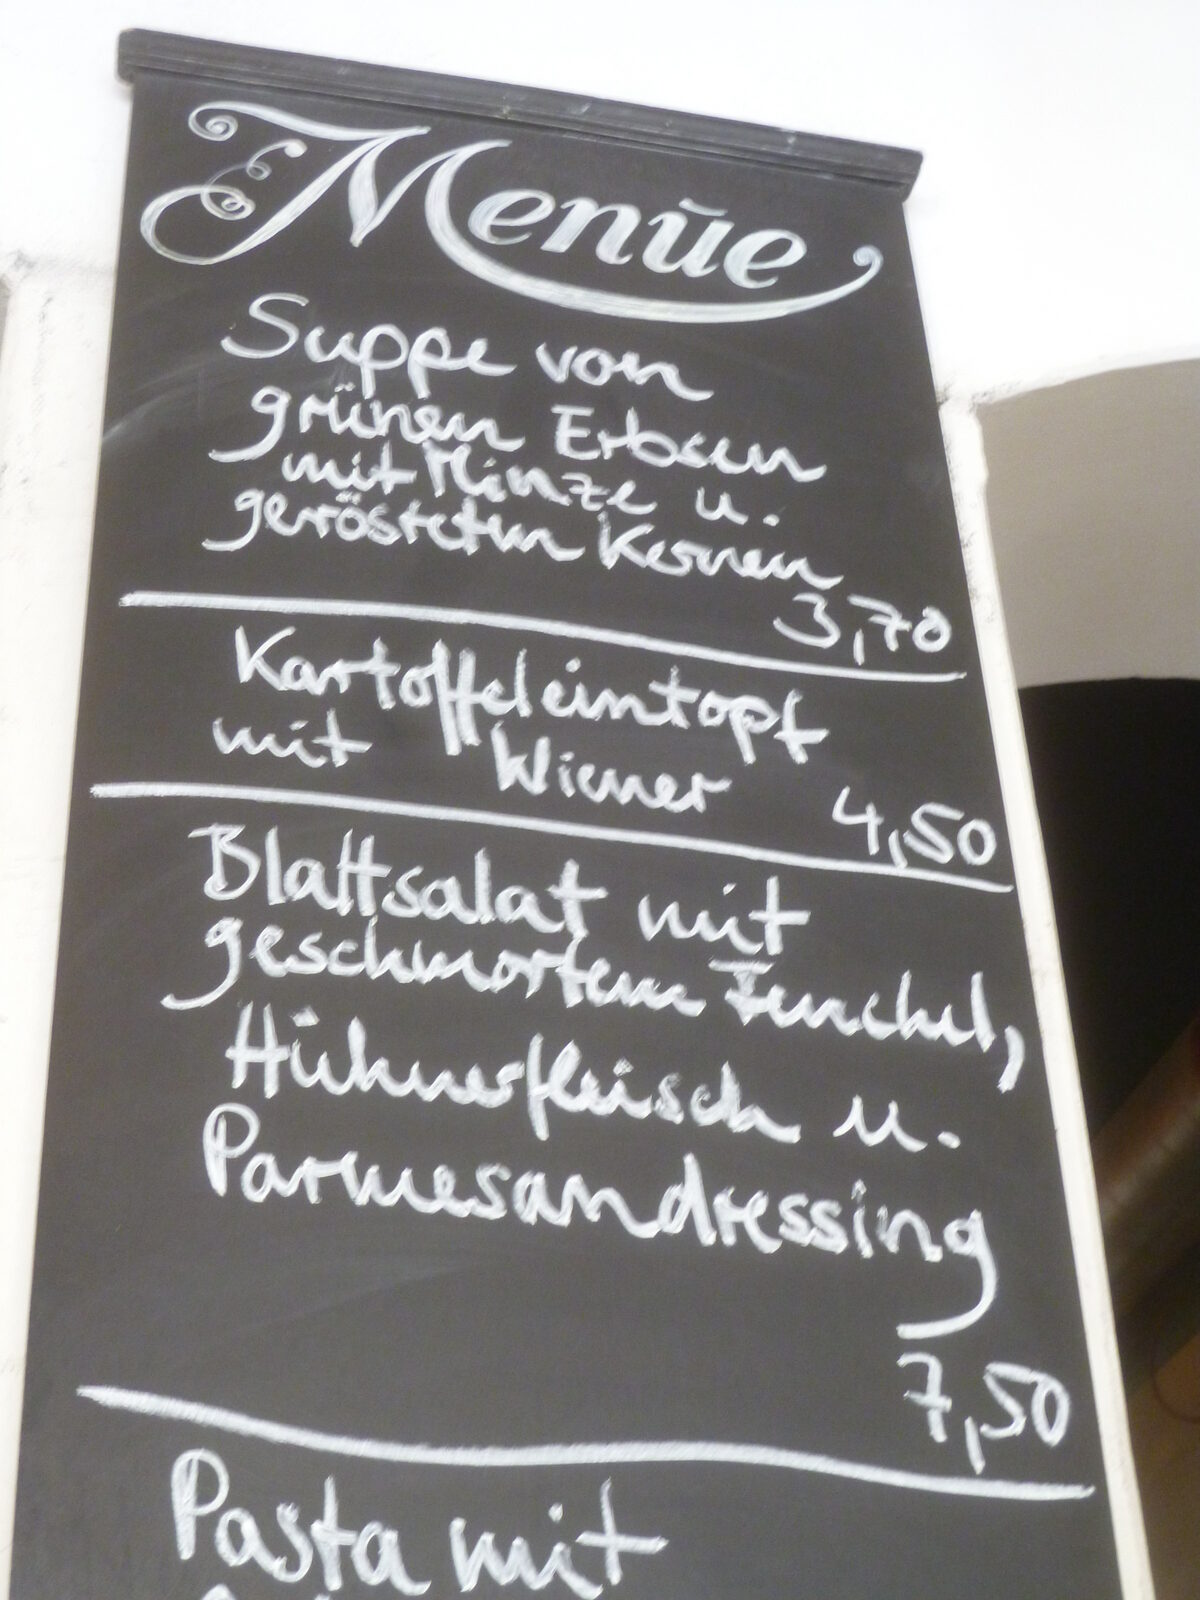 Menüe
Suppe von
grünen Erbsen
mit Minze u.
gerösteten Kernen
3,70
Kartoffeleintopf
mit Wiener
4,50
Blattsalat mit
geschmortem Fenchel,
Hühnerfleisch u.
Parmesandressing
7,50
Pasta mit